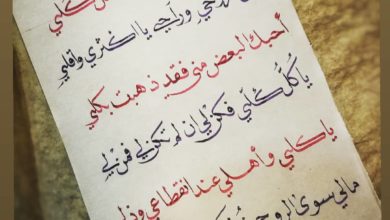 كلي
يا اكثري واقلي
أحبك البعض مني فقد ذهبت بكلي
يا كُلّ كُلّي فكن لي ان لم تكن لي فمن لي
يا كلي وأهلي عند انقطاعي وذلي
مالي سوى الروح